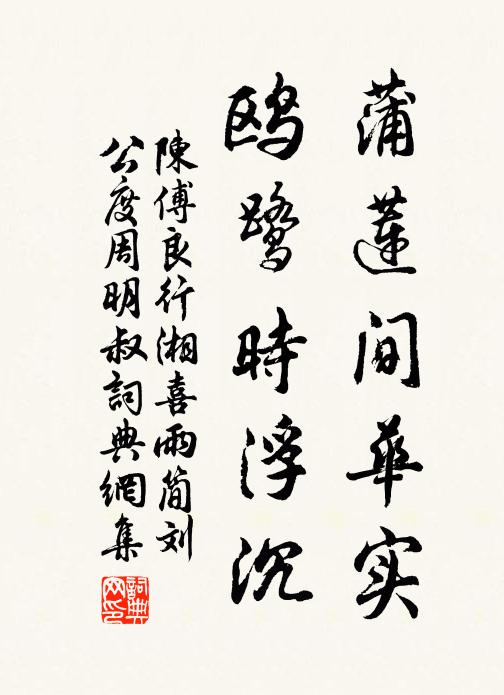 蒲蓮间華实
鸥鹭時浮沉
陳傅良行湘喜雨简刘
公度周明叔詞典網集
詞典网印